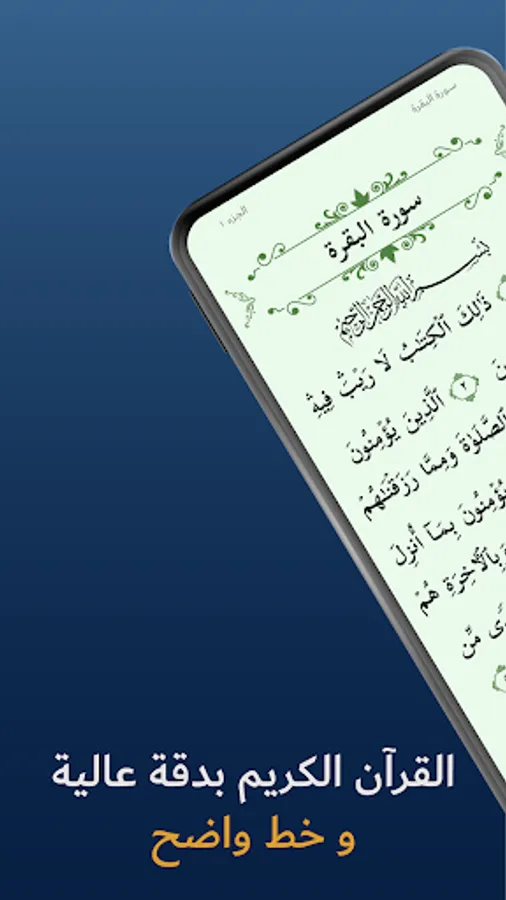 سورة البقرة
الجزء ١
سورة البقرة
بِسْمِ اللَّهِ الرَّحْمَٰنِ الرَّحِيمِ
ذَٰلِكَ ٱلْكِتَٰبُ لَا رَيْبَ ۛ فِيهِ
٢ ٱلَّذِينَ يُؤْمِنُونَ
ٱلصَّلَوٰةَ وَمِمَّا رَزَقْنَٰهُمْ
يُؤْمِنُونَ بِمَآ أُنزِلَ
وَبِٱلْءَاخِرَةِ هُمْ
مِّن
القرآن الكريم بدقة عالية
و خط واضح